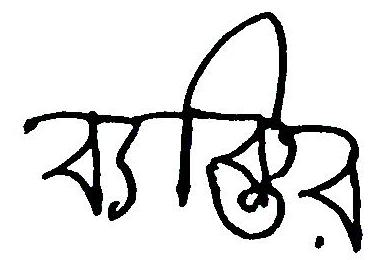 ব্যক্তির